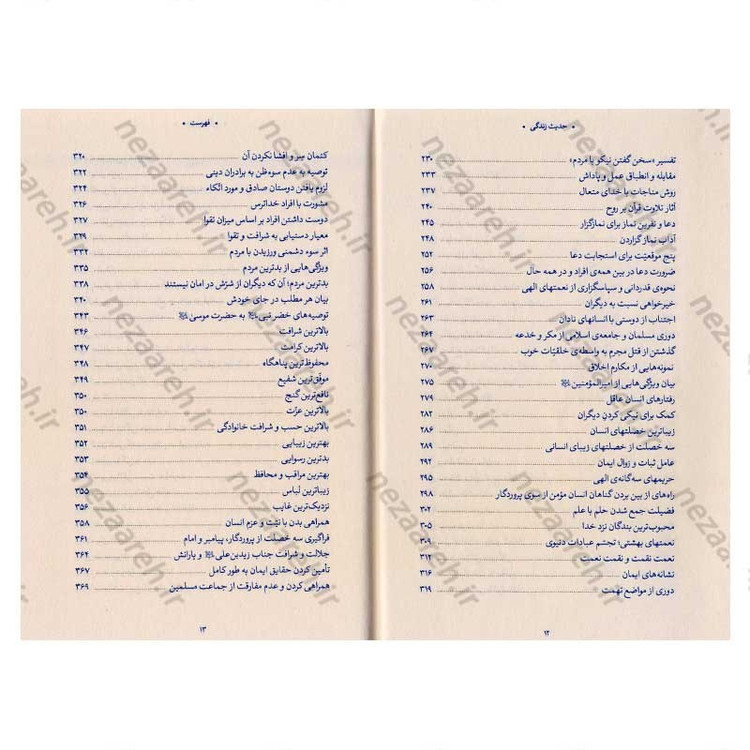 • حدیث زندگی •
تفسیر «سخن گفتن نیکو با مردم» ۲۳۰
مقابله و انطباق عمل و پاداش ۲۳۳
روش مناجات با خدای متعال ۲۳۷
آثار تلاوت قرآن بر روح ۲۴۰
دعا و نفرین نماز برای نمازگزار ۲۴۵
آداب نماز گزاردن ۲۴۸
پنج موقعیّت برای استجابت دعا ۲۵۲
ضرورت دعا در بین همه‌ی افراد و در همه حال ۲۵۶
نحوه‌ی قدردانی و سپاسگزاری از نعمتهای الهی ۲۵۸
خیرخواهی نسبت به دیگران ۲۶۱
اجتناب از دوستی با انسانهای نادان ۲۶۳
دوری مسلمان و جامعه‌ی اسلامی از مکر و خدعه ۲۶۴
گذشتن از قتل مجرم به واسطه‌ی خلقیّات خوب ۲۶۷
نمونه‌هایی از مکارم اخلاق ۲۷۰
بیان ویژگی‌هایی از امیرالمؤمنین ۲۷۵
رفتارهای انسان عاقل ۲۷۹
کمک برای نیکی کردن دیگران ۲۸۲
زیباترین خصلتهای انسان ۲۸۶
سه خصلت از خصلتهای زیبای انسانی ۲۸۹
عامل ثبات و زوال ایمان ۲۹۲
حریمهای سه‌گانه‌ی الهی ۲۹۵
راه‌های از بین بردن گناهان انسان مؤمن از سوی پروردگار ۲۹۸
فضیلت جمع شدن حلم با علم ۳۰۲
محبوب‌ترین بندگان نزد خدا ۳۰۵
نعمتهای بهشتی؛ تجسّم عبادات دنیوی ۳۰۹
نعمت نقمت و نقمت نعمت ۳۱۲
نشانه‌های ایمان ۳۱۶
دوری از مواضع تهمت ۳۱۹
۱۲
• فهرست •
کتمان سِر و افشا نکردن آن ۳۲۰
توصیه به عدم سوءظن به برادران دینی ۳۲۲
لزوم یافتن دوستان صادق و مورد اتّکاء ۳۲۴
مشورت با افراد خداترس ۳۲۶
دوست داشتن افراد بر اساس میزان تقوا ۳۲۷
معیار دستیابی به شرافت و تقوا ۳۲۹
اثر سوء دشمنی ورزیدن با مردم ۳۳۲
ویژگی‌هایی از بدترین مردم ۳۳۵
بدترین مردم؛ آن که دیگران از شرّش در امان نیستند ۳۳۸
بیان هر مطلب در جای خودش ۳۴۰
توصیه‌های خضر نبی به حضرت موسی ۳۴۳
بالاترین شرافت ۳۴۶
بالاترین کرامت ۳۴۷
محفوظ‌ترین پناهگاه ۳۴۸
موفق‌ترین شفیع ۳۴۹
نافع‌ترین گنج ۳۵۰
بالاترین عزّت ۳۵۰
بالاترین حسب و شرافت خانوادگی ۳۵۱
بهترین زیبایی ۳۵۲
بدترین رسوایی ۳۵۳
بهترین مراقب و محافظ ۳۵۴
زیباترین لباس ۳۵۵
نزدیک‌ترین غایب ۳۵۶
همراهی بدن با نیّت و عزم انسان ۳۵۸
فراگیری سه خصلت از پروردگار، پیامبر و امام ۳۶۱
جلالت و شرافت جناب زیدبن‌علی و یارانش ۳۶۴
تأمین کردن حقایق ایمان به طور کامل ۳۶۷
همراهی کردن و عدم مفارقت از جماعت مسلمین ۳۶۹
۱۳
nezaareh.ir